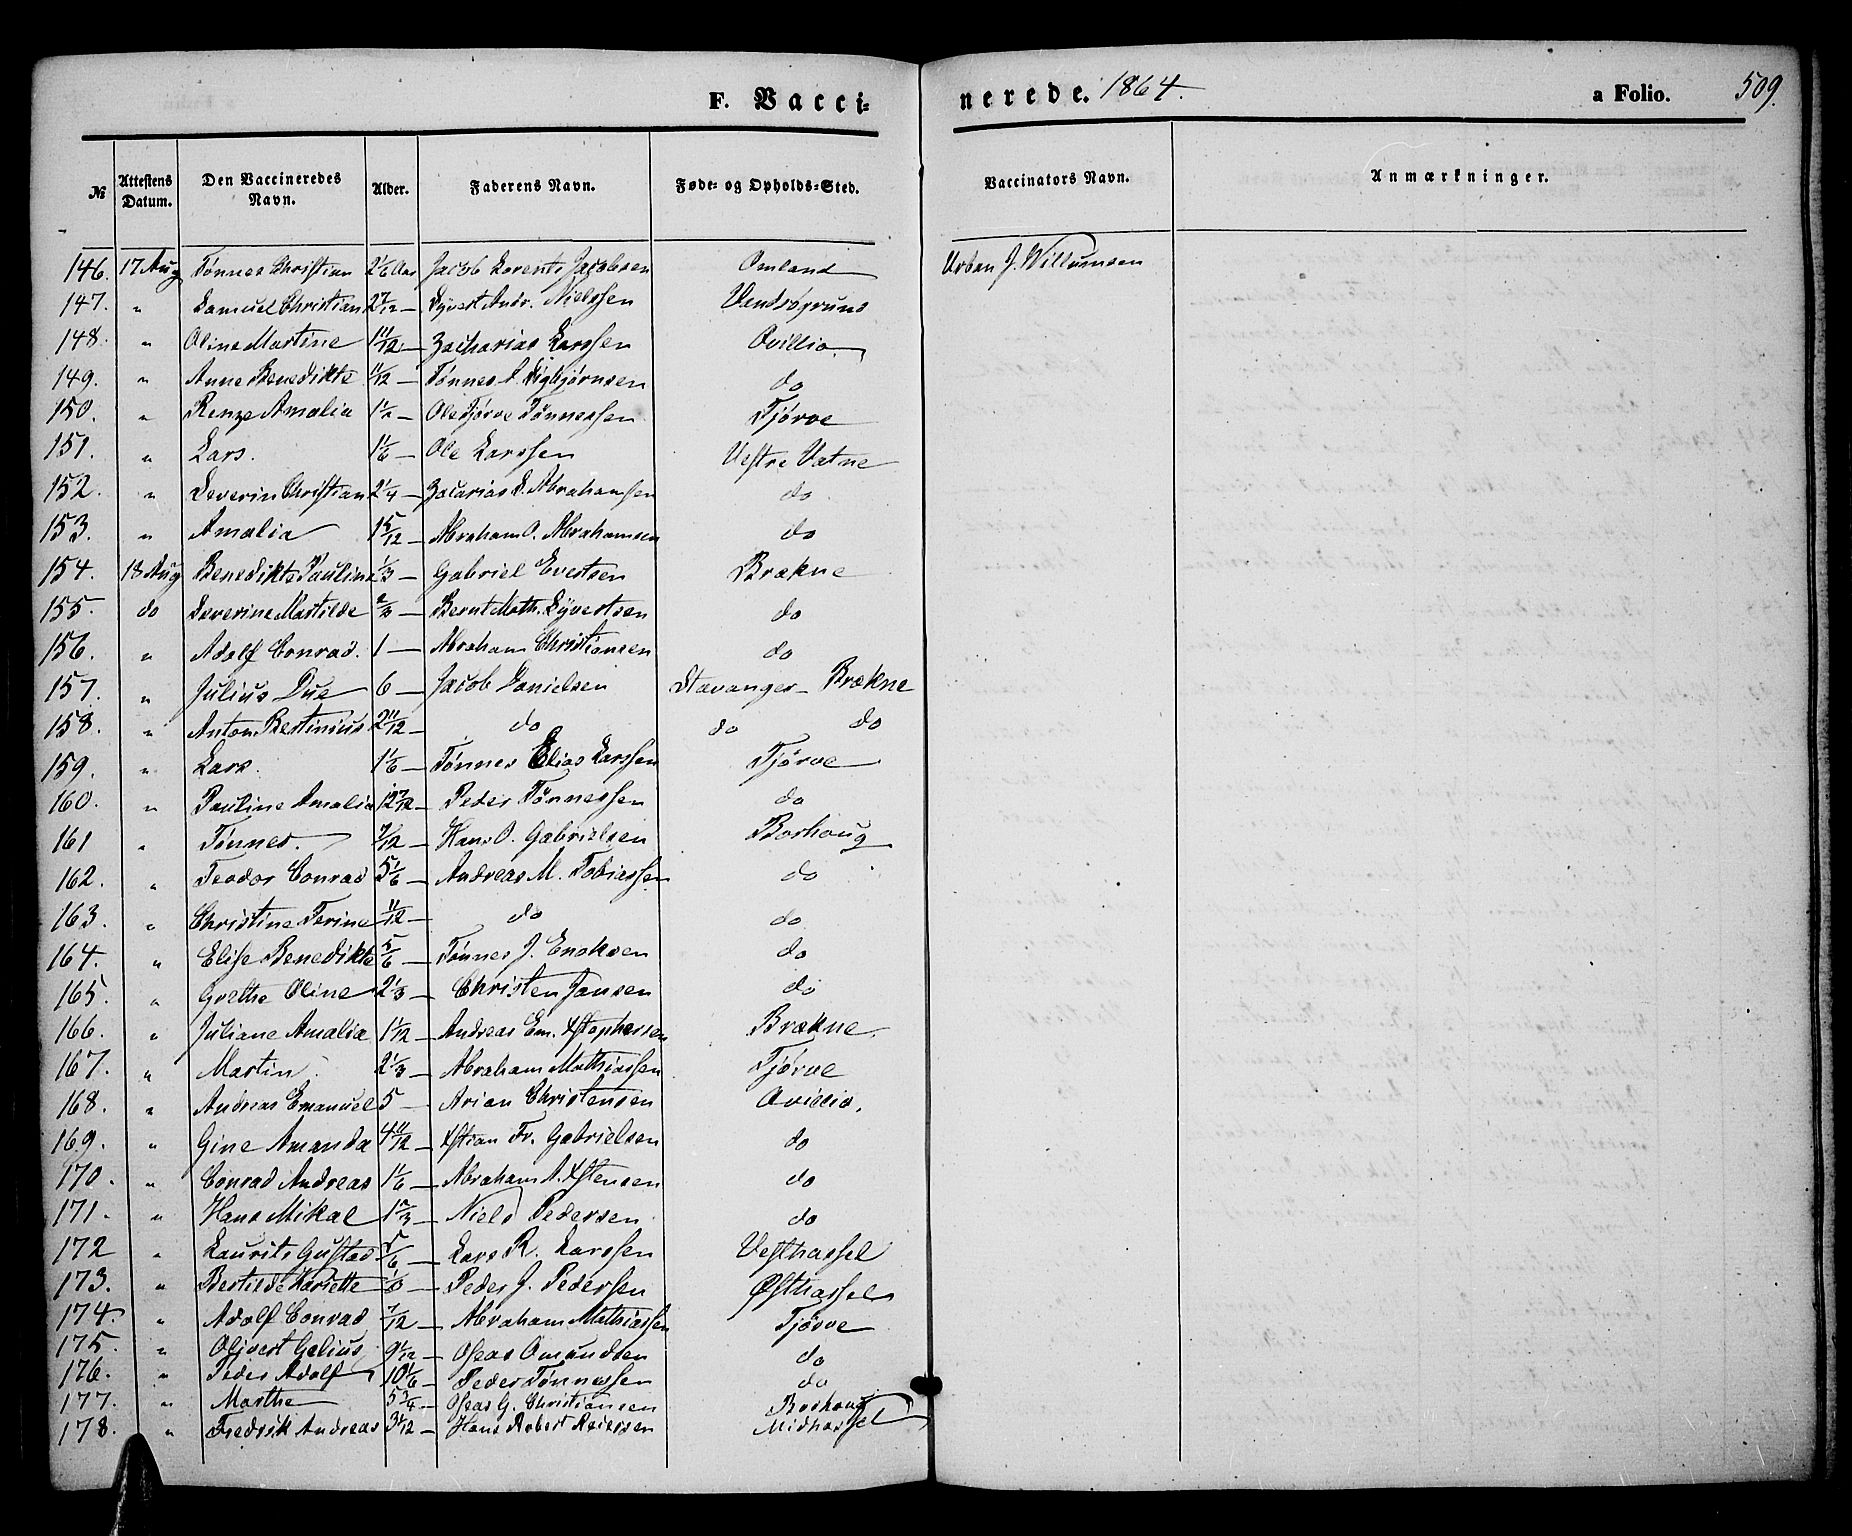 F. Vaccinerede. 1864. a Folio. 509.
№ Attestens Datum. Den Vaccineredes Navn. Alder. Faderens Navn. Føde- og Opholds-Sted. Vaccinators Navn. Anmærkninger.
146. 17 Aug Tønnes Christian 2 1/6 Aar Jacob Lorents Jacobsen Omland Urban J. Willumsen
147. " Samuel Christian 2 7/12 — Syvert Andr. Nielssen
148. " Oline Martine 11/12 — Zacharias Larssen Ovillio
149. " Anne Benedikte 11/12 — Tønnes S. Sigbjørnsen do
150. " Renze Amalia 1 1/2 — Ole Tjørve Tønnessen Tjørve
151. " Lars. 1 1/6 — Ole Larssen Vestre Vatne
152. " Severin Christian 2 1/4 — Zacarias S. Abrahamsen do
153. " Amalia 1 5/12 — Abraham O. Abrahamsen do
154. 18 Aug Benedikte Pauline 2/3 — Gabriel Evertsen Brækne
155. do Severine Matilde 2/3 — Bernt Math. Syvertsen do
156. " Adolf Conrad. 1 — Abraham Christiansen do
157. " Julius Due 6 — Jacob Danielsen Stavanger - Brækne
158. " Anton Bertinius 2 11/12 — do do do
159. " Lars. 1 1/6 — Tønnes Elias Larssen Tjørve
160. " Pauline Amalia 12 7/12 — Peder Tønnessen do
161 " Tønnes. 7/12 — Hans O. Gabrielsen Borhoug
162. " Teodor Conrad 5 1/6 — Andreas M. Tobiassen do
163. " Christine Terine 11/12 — do do
164. " Elise Benedikte 5/6 — Tønnes J. Enoksen do
165. " Grethe Oline 2 1/3 — Christen Jansen do
166. " Juliane Amalia 1 1/12 — Andreas Em. Xstophersen Brækne.
167. " Martin. 2 1/3 — Abraham Mathiassen Tjørve
168. " Andreas Emanuel 5 — Arian Christensen Ovillio.
169. " Gine Amanda 4 11/12 — Xstian Fr. Gabrielsen do
170. " Conrad Andreas 1 1/6 — Abraham A. Xstensen do
171. " Hans Mikal 1 2/3 — Niels Pedersen do
172 " Laurits Gustad. 5/6 — Lars R. Larssen Vesthassel
173. " Bertilde Hariette — Peder J. Pederssen Østhassel
174. " Adolf Conrad 7/12 — Abraham Mathiassen Tjørve
175. " Olivert Gelius 9 1/12 — Oseas Omundsen do
176. " Peder Adolf 10 1/6 — Peder Tønnessen do
177. " Marthe 5 3/4 — Oseas G. Christiansen Borhoug
178. " Fredrik Andreas 3 1/12 — Hans Robert Reierssen Midhassel